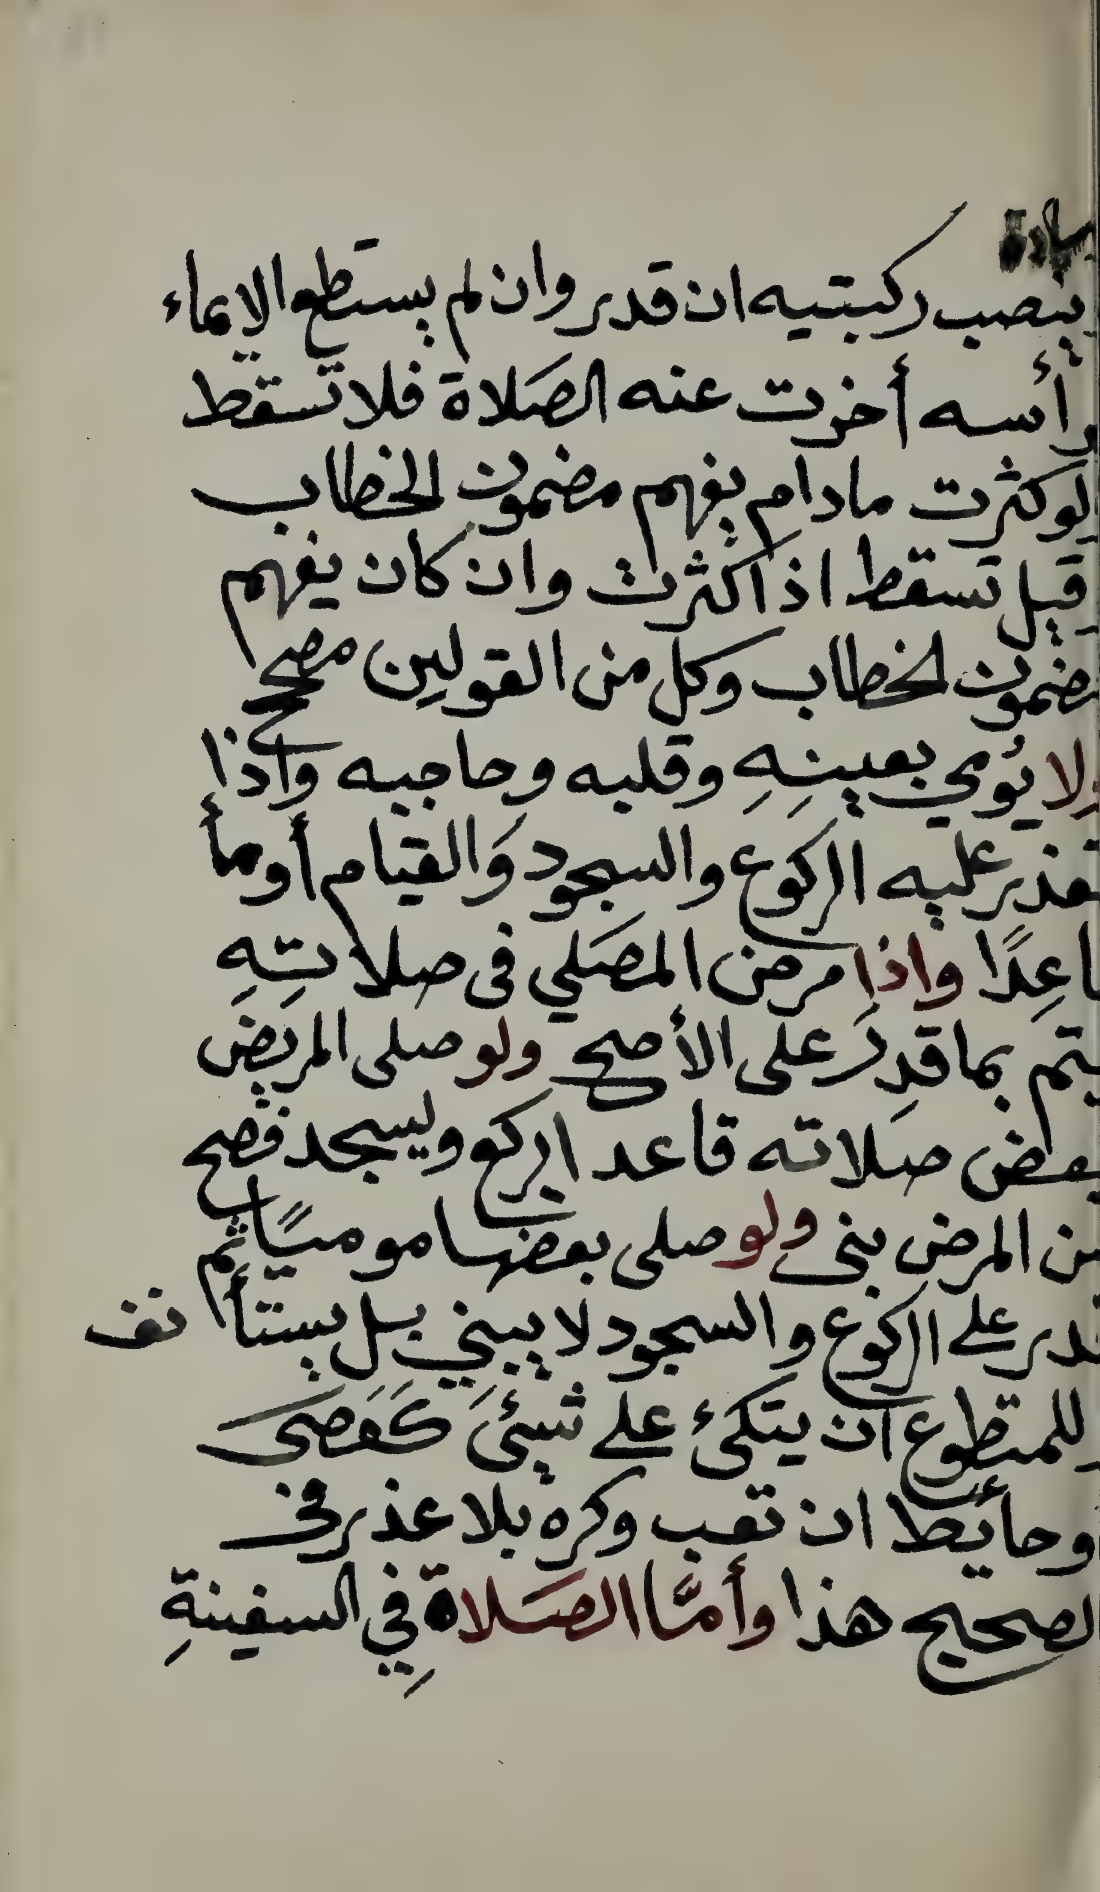 ينصب ركبتيه ان قدر وان لم يستطع الايماء
رأسه أخرت عنه الصَلاة فلا تسقط
لوكثرت مادام يفهم مضمون الخطاب
قيل تسقط اذا كثرت وان كان يفهم
مضمون الخطاب وكل من القولين مصحح
ولا يُومي بعينِهِ وقلبه وحاجبه واذا
تعذر عليه الركوع والسجود وَالقيام أومأ
اعِدًا واذا مرض المصَلي فى صلاتِهِ
يتم بما قدِرَ على الأصح ولو صلى المريض
بعض صَلاته قاعد ايركع ويسجد فصح
من المرض بنى ولو صلى بعضها موميًا ثم
قدر على الركوع والسجود لا يبني بل يستأنف
للمتطوع ان يتكئ على شيئ كَعَصَى
وحأيط ان تعب وكره بلا عذر في
الصحيح هذا وأمَّا الصَلاة فِي السفينةِ